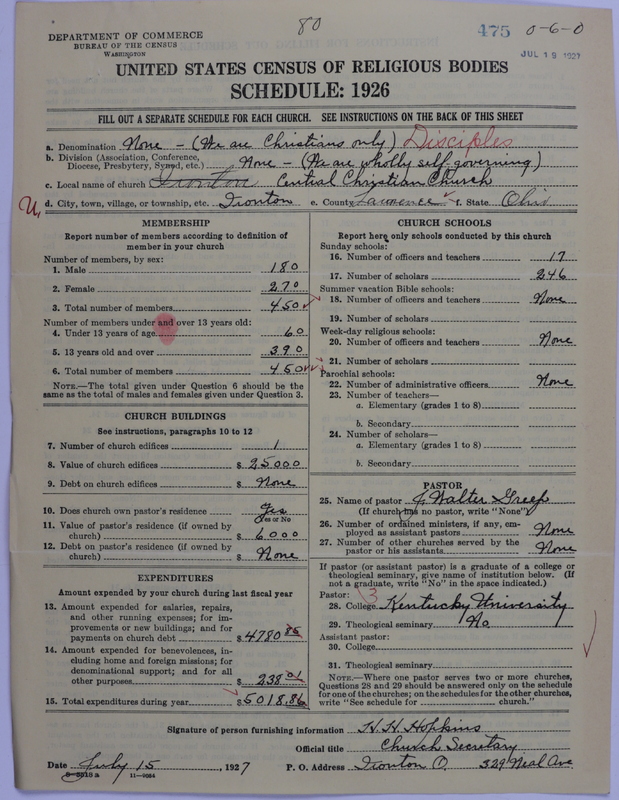 80
475 0-6-0
JUL 19 1927
DEPARTMENT OF COMMERCE
BUREAU OF THE CENSUS
WASHINGTON
UNITED STATES CENSUS OF RELIGIOUS BODIES
SCHEDULE: 1926
FILL OUT A SEPARATE SCHEDULE FOR EACH CHURCH. SEE INSTRUCTIONS ON THE BACK OF THIS SHEET
a. Denomination None - (We are Christians only) Disciples
b. Division (Association, Conference,
Diocese, Presbytery, Synod, etc.) None - (We are wholly self governing)
c. Local name of church Ironton Central Christian Church
U, d. City, town, village, or township, etc. Ironton e. County Lawrence f. State Ohio
MEMBERSHIP
Report number of members according to definition of
member in your church
Number of members, by sex:
1. Male 180
2. Female 270
3. Total number of members 450
Number of members under and over 13 years old:
4. Under 13 years of age 60
5. 13 years old and over 390
6. Total number of members 450
NOTE.—The total given under Question 6 should be
same as the total of males and females given under Question 3.
CHURCH BUILDINGS
See instructions, paragraphs 10 to 12
7. Number of church edifices 1
8. Value of church edifices $ 25000
9. Debt on church edifices $ None
10. Does church own pastor's residence Yes
Yes or No
11. Value of pastor's residence (if owned by
church) $ 6000
12. Debt on pastor's residence (if owned by
church) $ None
EXPENDITURES
Amount expended by your church during last fiscal year
13. Amount expended for salaries, repairs,
and other running expenses; for im-
provements or new buildings; and for
payments on church debt $ 4780 85
14. Amount expended for benevolences, in-
cluding home and foreign missions; for
denominational support; and for all
other purposes $ 238 01
15. Total expenditures during year $ 5018.86
CHURCH SCHOOLS
Report here only schools conducted by this church
Sunday schools:
16. Number of officers and teachers 17
17. Number of scholars 246
Summer vacation Bible schools:
18. Number of officers and teachers None
19. Number of scholars
Week-day religious schools:
20. Number of officers and teachers None
21. Number of scholars
Parochial schools:
22. Number of administrative officers None
23. Number of teachers—
a. Elementary (grades 1 to 8)
b. Secondary
24. Number of scholars—
a. Elementary (grades 1 to 8)
b. Secondary
PASTOR
25. Name of pastor J. Walter
(If church has no pastor, write "None")
26. Number of ordained ministers, if any, em-
ployed as assistant pastors None
27. Number of other churches served by the
pastor or his assistants None
If pastor (or assistant pastor) is a graduate of a college or
theological seminary, give name of institution below. (If
not a graduate, write "No" in the space indicated.)
Pastor: 3
28. College Kentucky University
29. Theological seminary No
Assistant pastor:
30. College
31. Theological seminary
NOTE.—Where one pastor serves two or more churches,
Questions 28 and 29 should be answered only on the schedule
for one of the churches; on the schedules for the other churches,
write "See schedule for church."
Signature of person furnishing information H. H. Hopkins
Official title Church Secretary
Date July 15, 1927 P. O. Address Ironton O. 329 Neal Ave
8-5518 a 11-9064